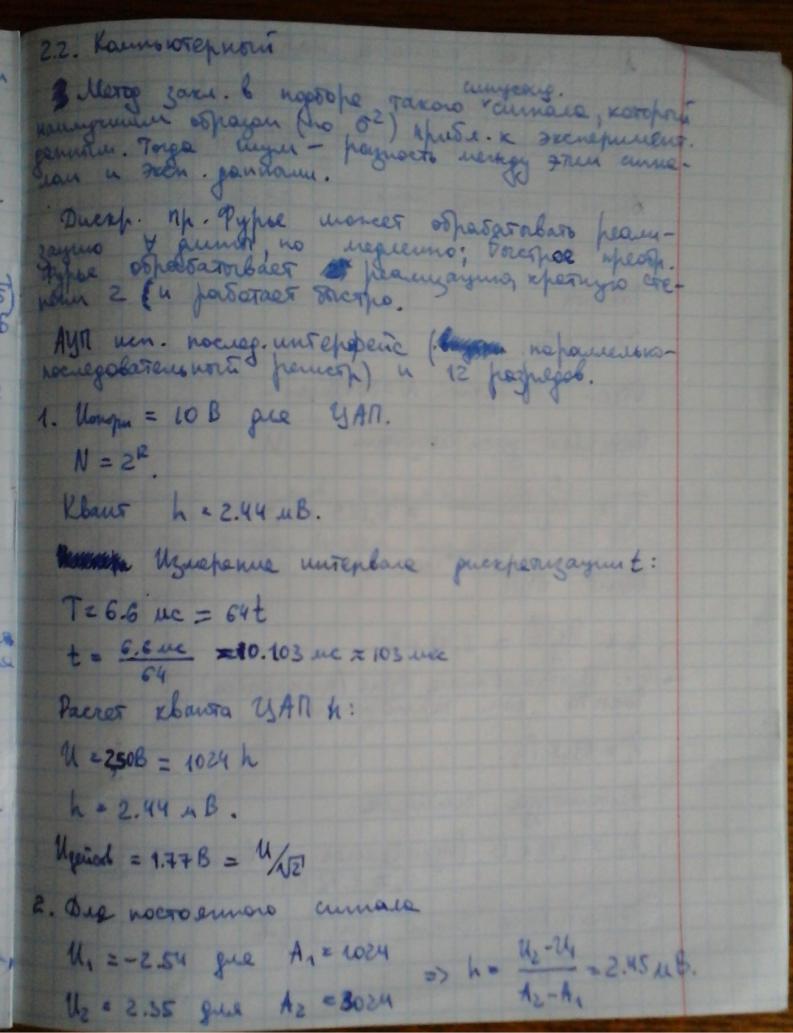 2.2. Компьютерный
Метод закл. в подборе такого синусоид. сигнала, который
наилучшим образом (по σ²) прибл. к эксперимент.
данным. Тогда шум – разность между этим сигна-
лом и эксп. данными.
Дискр. пр. Фурье может обрабатывать реали-
зацию ∀ длины, но медленно; быстрое преобр.
Фурье обрабатывает реализацию, кратную сте-
пеням 2 (и работает быстро.
АЦП исп. послед. интерфейс (параллельно-
последовательный регистр) и 12 разрядов.
1. Uопорн = 10 В для ЦАП.
N = 2ᴿ.
Квант h = 2.44 мВ.
Измерение интервала дискретизации t:
T = 6.6 мс = 64t
t = 6.6 мс / 64 = 0.103 мс ≈ 103 мкс
Расчет кванта ЦАП h:
U = 2,50В = 1024 h
h = 2.44 мВ.
Uдейств = 1.77 В = U/√2
2. Для постоянного сигнала
U₁ = -2.54 для A₁ = 1024
U₂ = 2.35 для A₂ = 3024 => h = U₂-U₁ / A₂-A₁ = 2.45 мВ.